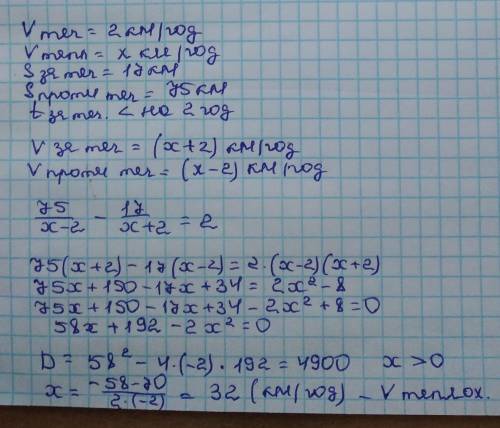 Vтеч = 2 км/год
Vтепл = х км/год
Sза теч = 17 км
Sпроти теч = 75 км
tза теч. < на 2 год
Vза теч = (х+2) км/год
Vпроти теч = (х-2) км/год
75/(х-2) - 17/(х+2) = 2
75(х+2) - 17(х-2) = 2·(х-2)(х+2)
75х + 150 - 17х + 34 = 2х² - 8
75х + 150 - 17х + 34 - 2х² + 8 = 0
58х + 192 - 2х² = 0
D = 58² - 4·(-2)·192 = 4900 х > 0
х = (-58-70)/(2·(-2)) = 32 (км/год) - Vтеплох.